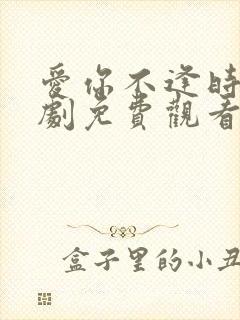 愛你不逢時
劇免費觀看
盒子里的小丑